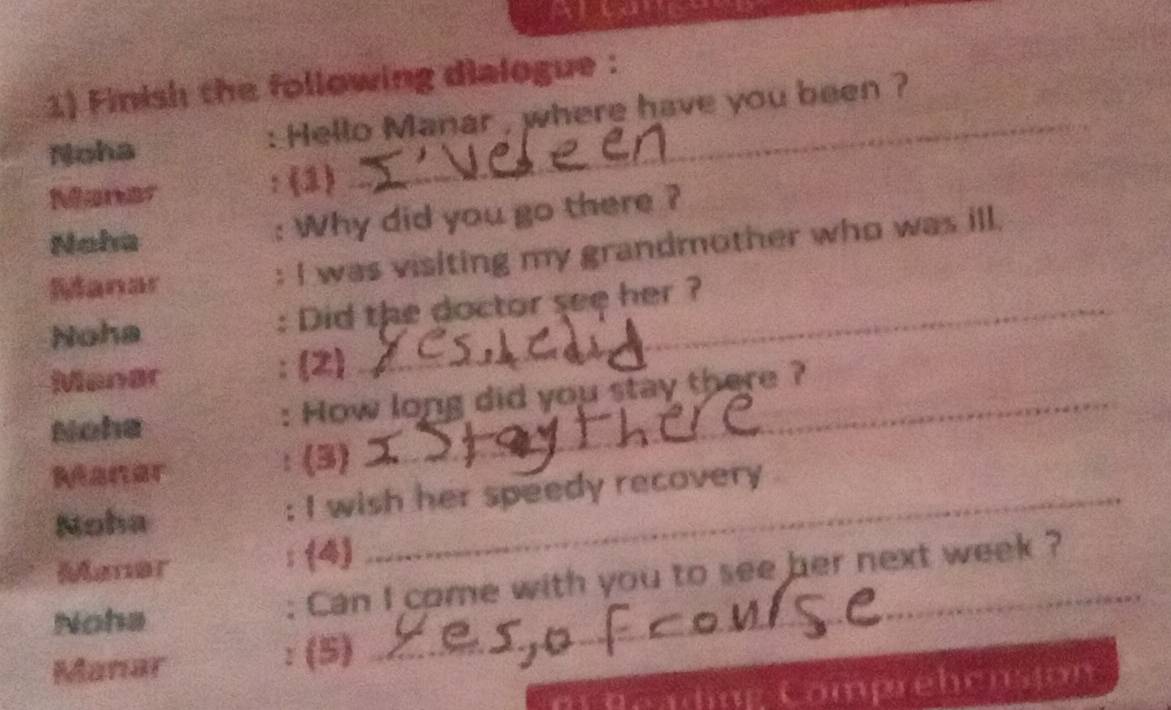 1) Finish the following dialogue :
Noha : Hello Manar , where have you been ?
Manar : (1) I've been
Noha : Why did you go there ?
Manar : I was visiting my grandmother who was ill.
Noha : Did the doctor see her ?
Manar : (2) Yes, he did
Noha : How long did you stay there ?
Manar : (3) I stay there
Noha : I wish her speedy recovery
Manar : (4)
Noha : Can I come with you to see her next week ?
Manar : (5) Yes, of course
Reading Comprehension